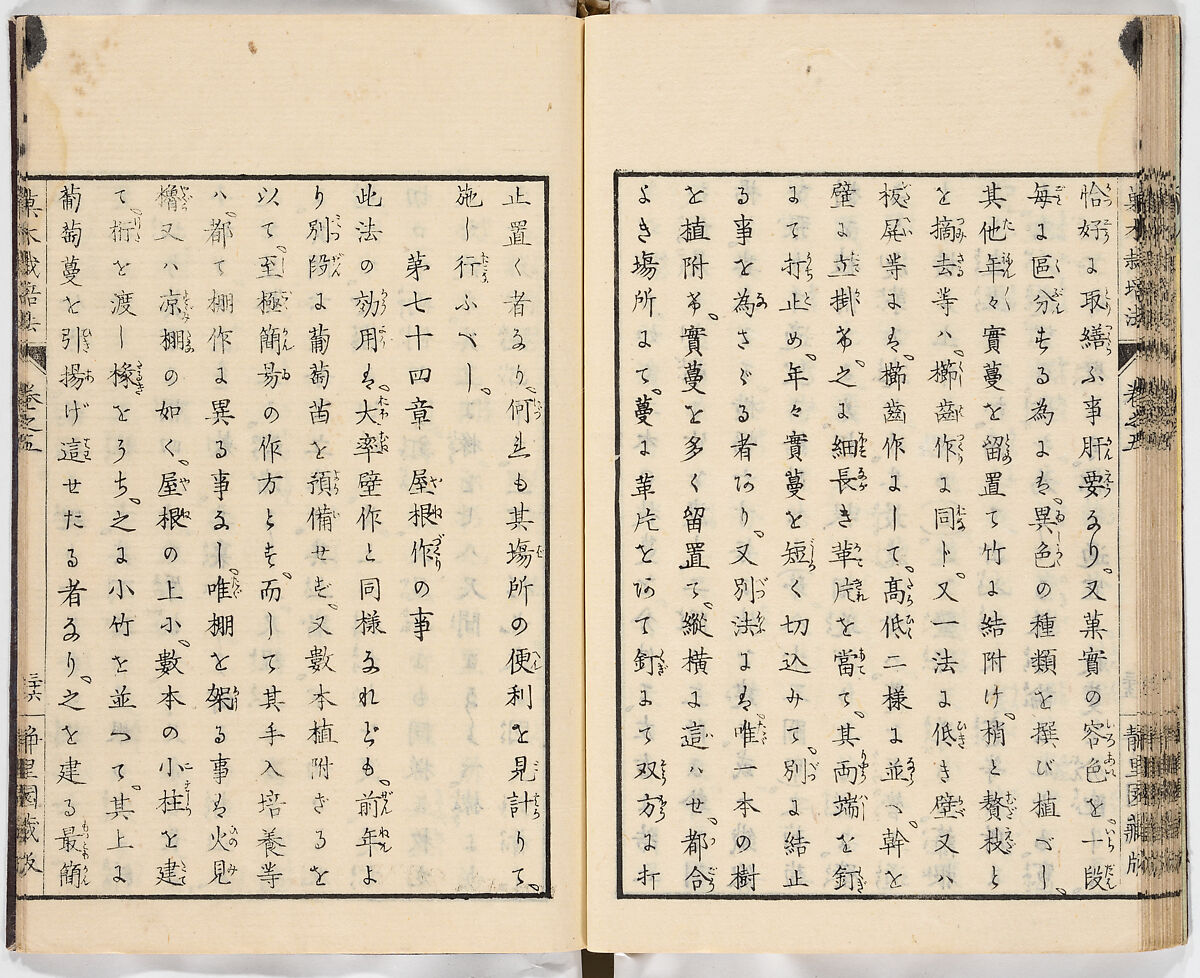 菓木栽培法
卷之五
静里園藏版
恰好に取繕ふ事肝要なり又菓實の容色を一段
毎に區分する為には異色の種類を撰び植べし
其他年々實蔓を留置て竹に結附け梢と贅枝と
を摘去等ハ櫛齒作に同ト又一法は低き壁又ハ
板屏等には櫛齒作にして高低二様に並べ幹を
壁に並掛け之に細長き革片を當て其両端を釘
にて打止め年々實蔓を短く切込みて別に結止
る事を為さゞる者あり又別法には唯一本の樹
を植附け實蔓を多く留置て縱横に這ハせ都合
よき塲所にて蔓に革片をあてて釘にて双方に打
止置く者なり何れも其塲所の便利を見計りて
施し行ふべし
第七十四章 屋根作の事
此法の効用は大率壁作と同様なれども前年よ
り別段に葡萄苗を預備せず又數本植附ざるを
以て至極簡易の作方とす而して其手入培養等
ハ都て棚作に異る事なし唯棚を架る事は火見
櫓又ハ凉棚の如く屋根の上に數本の小柱を建
て桁を渡し椽をうち之に小竹を並べて其上に
葡萄蔓を引揚げ這せたる者なり之を建る最簡
菓木栽培法
卷之五
三十六
静里園藏版